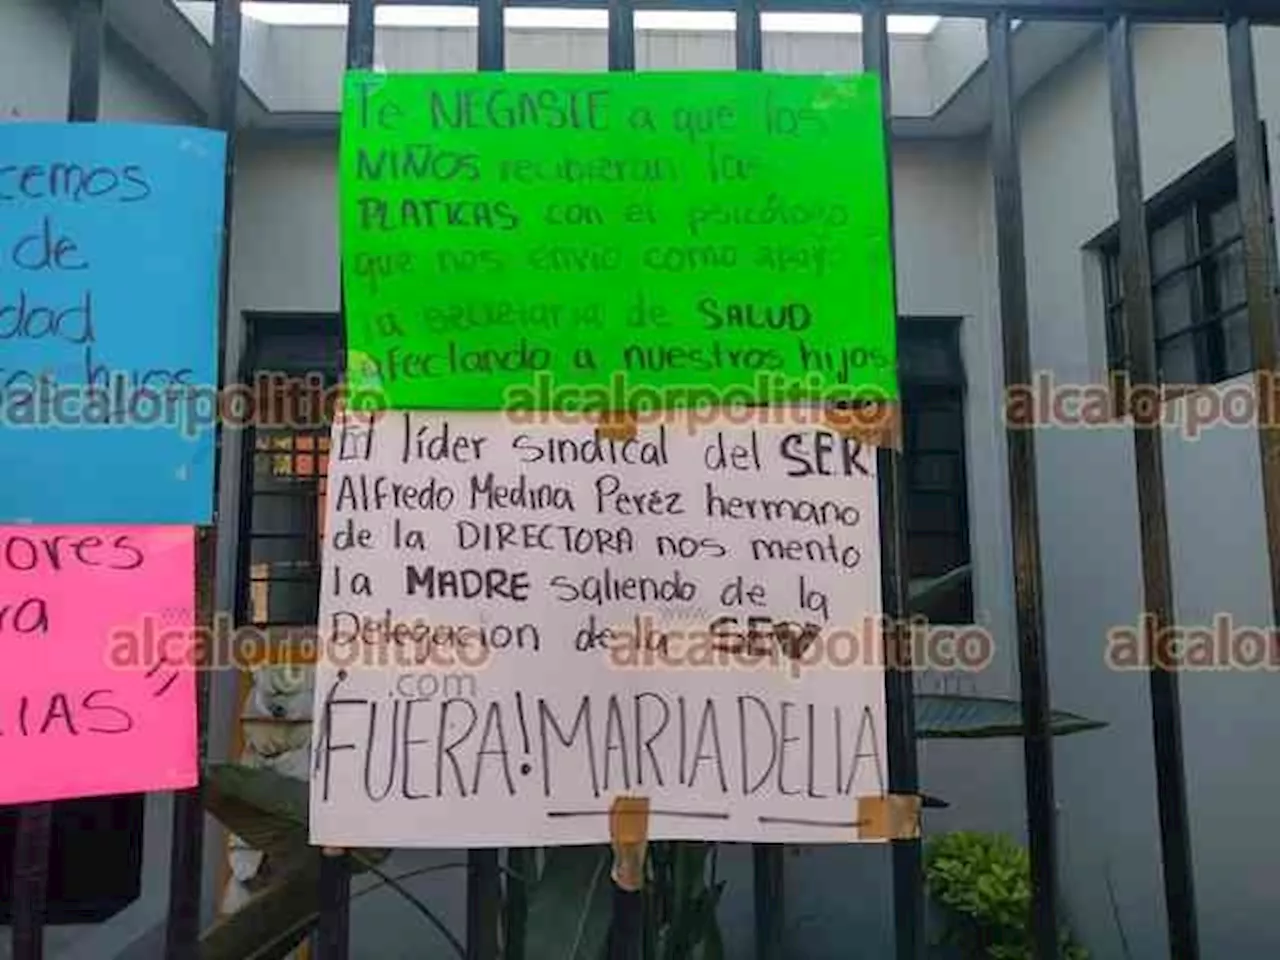 cemos
de
dad
hijos
ores
ra
LIAS"
Te NEGASTE a que los
NIÑOS recibieran las
PLATICAS con el psicólogo
que nos envio como apoyo
la secretaria de SALUD
afectando a nuestros hijos
El líder sindical del SER
Alfredo Medina Peréz hermano
de la DIRECTORA nos mento
la MADRE saliendo de la
Delegacion de la SER
¡FUERA! MARIA DELIA
alcalorpolitico
alcalorpolitico
alcalorpoli
alcalorpolitico
.com
alcalorpolitico
.com
alcalor